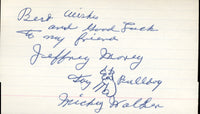 Best Wishes
and Good Luck
to my friend
Jeffrey Morey
Toy Bulldog
Mickey Walker